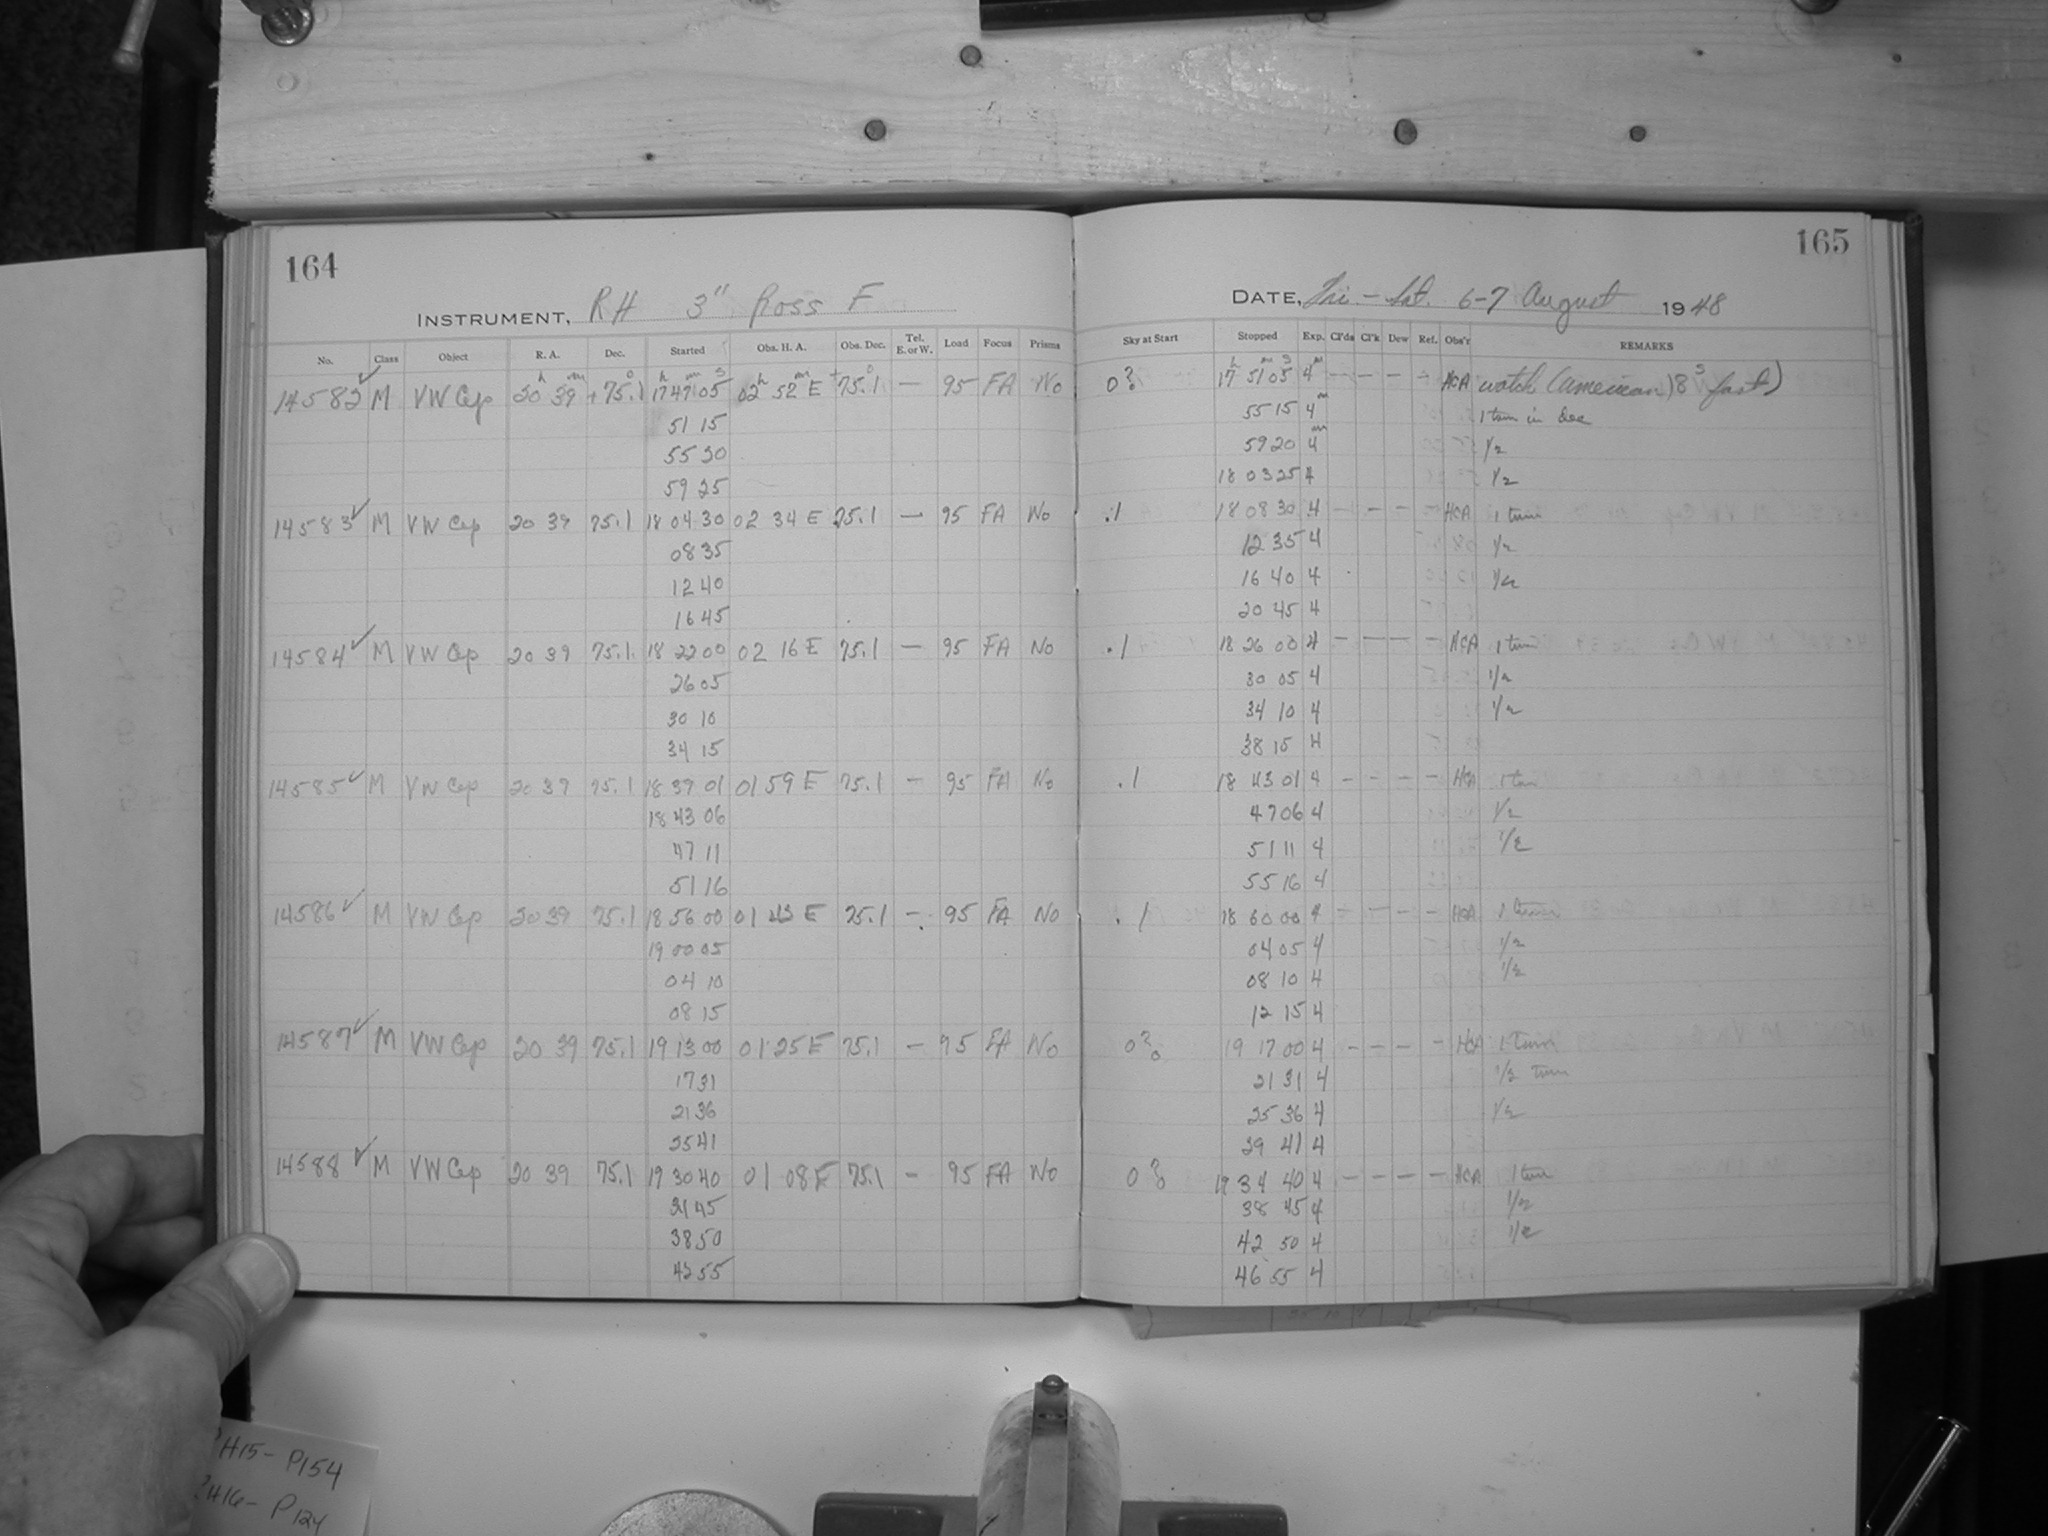 164
165
INSTRUMENT, RH 3" Ross F
DATE, Fri - Sat. 6-7 August 1948
No. Class Object R. A. Dec. Started Obs. H. A. Obs. Dec. Tel. E. or W. Load Focus Prisms Sky at Start Stopped Exp. Cl'ds Cl'k Dew Ref. Obs'r REMARKS
14582 ✓ M VW Cep 20h 39m +75.1° 17h 47m 05s 02h 52m E +75.1° — 95 FA No 0? 17h 51m 05s 4m — — — — HCA watch (American) 8s fast)
51 15 55 15 4m 1 turn in dec
55 20 59 20 4m 1/2
59 25 18 03 25 4 1/2
14583 ✓ M VW Cep 20 39 75.1 18 04 30 02 34 E 75.1 — 95 FA No .1 18 08 30 4 — — — — HCA 1 turn
08 35 12 35 4 1/2
12 40 16 40 4 1/2
16 45 20 45 4
14584 ✓ M VW Cep 20 39 75.1 18 22 00 02 16 E 75.1 — 95 FA No .1 18 26 00 4 — — — — HCA 1 turn
26 05 30 05 4 1/2
30 10 34 10 4 1/2
34 15 38 15 4
14585 ✓ M VW Cep 20 39 75.1 18 39 01 01 59 E 75.1 — 95 FA No .1 18 43 01 4 — — — — HCA 1 turn
18 43 06 47 06 4 1/2
47 11 51 11 4 1/2
51 16 55 16 4
14586 ✓ M VW Cep 20 39 75.1 18 56 00 01 43 E 75.1 — 95 FA No .1 18 60 00 4 — — — — HCA 1 turn
19 00 05 04 05 4 1/2
04 10 08 10 4 1/2
08 15 12 15 4
14587 ✓ M VW Cep 20 39 75.1 19 13 00 01 25 E 75.1 — 95 FA No 0? 19 17 00 4 — — — — HCA 1 turn
17 31 21 31 4 1/2 turn
21 36 25 36 4 1/2
25 41 29 41 4
14588 ✓ M VW Cep 20 39 75.1 19 30 40 01 08 E 75.1 — 95 FA No 0? 19 34 40 4 — — — — HCA 1 turn
45 38 45 4 1/2
38 50 42 50 4 1/2
42 55 46 55 4
H15 - P154
H16 - P124